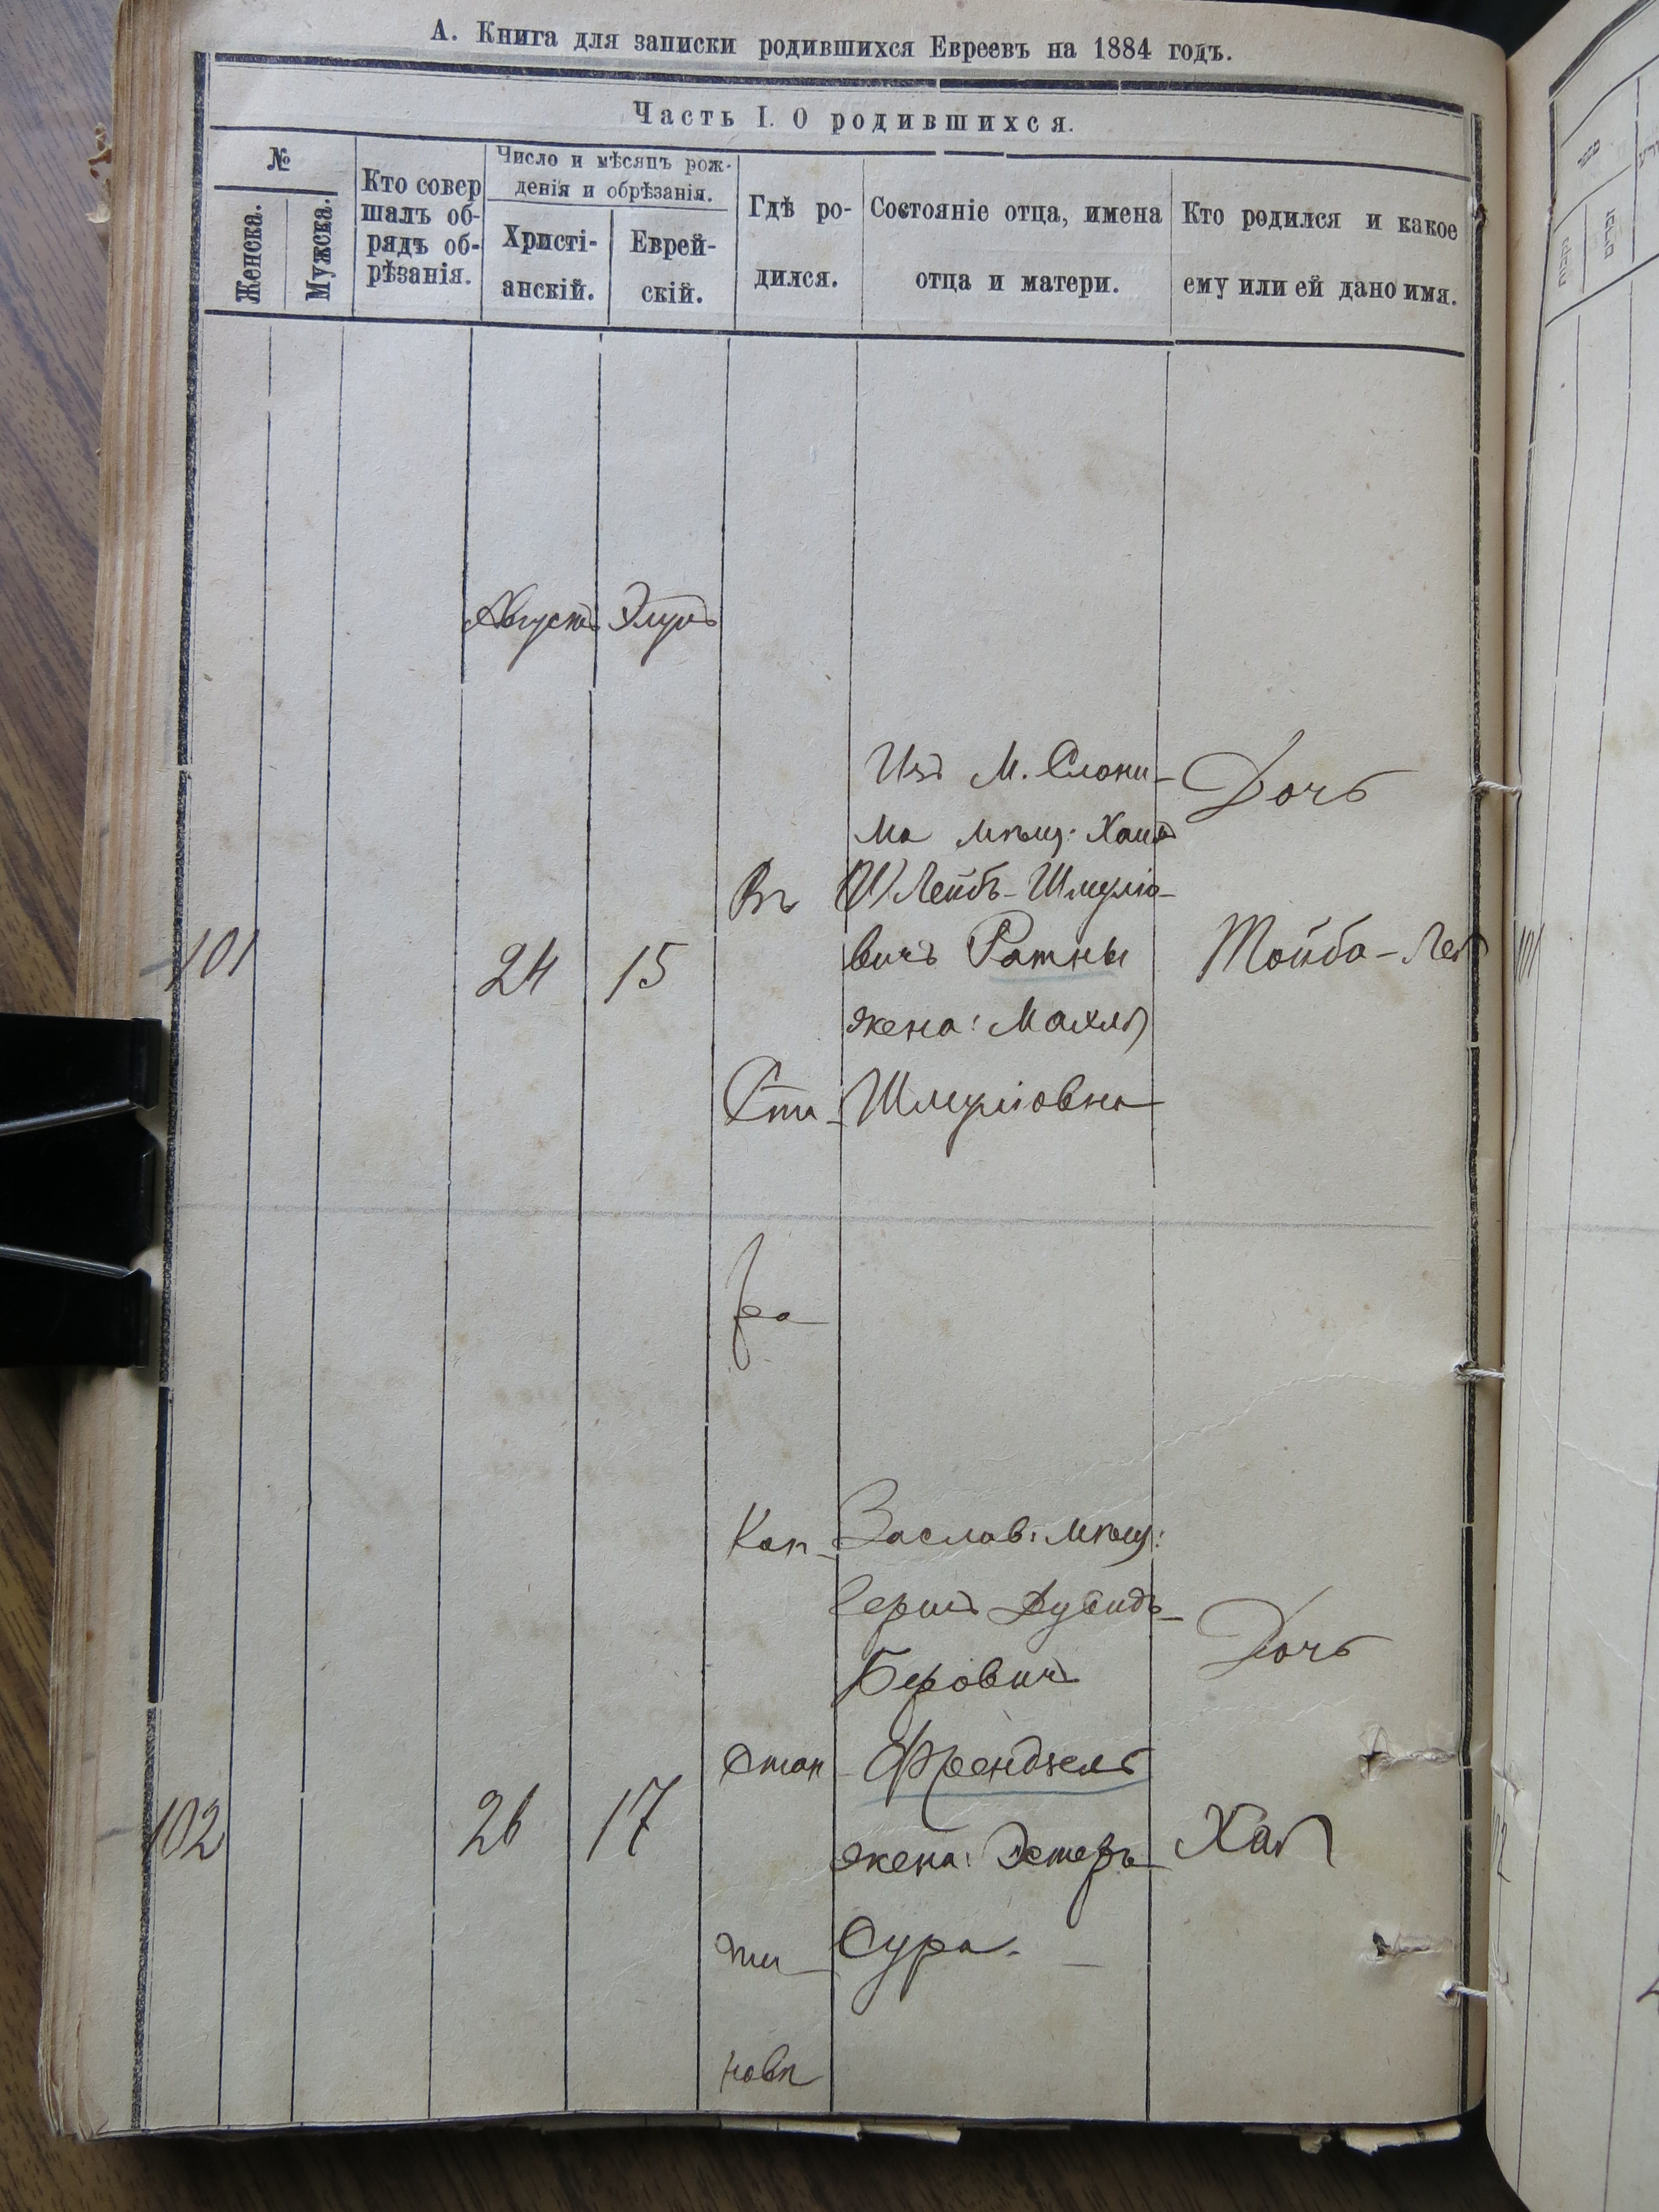 А. Книга для записки родившихся Евреевъ на 1884 годъ.
Часть I. О родившихся.
№
Женска.
Мужска.
Кто совер
шалъ об-
рядъ об-
рѣзанія.
Число и мѣсяцъ рож-
денія и обрѣзанія.
Христі-
анскій.
Еврей-
скій.
Гдѣ ро-
дился.
Состояніе отца, имена
отца и матери.
Кто родился и какое
ему или ей дано имя.
Августъ
Элулъ
101
24
15
Въ
Ста-
ро
Изъ М. Слони-
ма мѣщ: Хаимъ
Лейбъ-Шмуліо-
вичъ Ратны
жена: Махля
Шмуліовна
Дочь
Тойба-Лея
101
102
26
17
Кон-
стан
ти-
новѣ
Заслав: мѣщ:
Герша Дувидъ-
Беровичъ
Френдзель
жена: Эстеръ
Сура.
Дочь
Хая